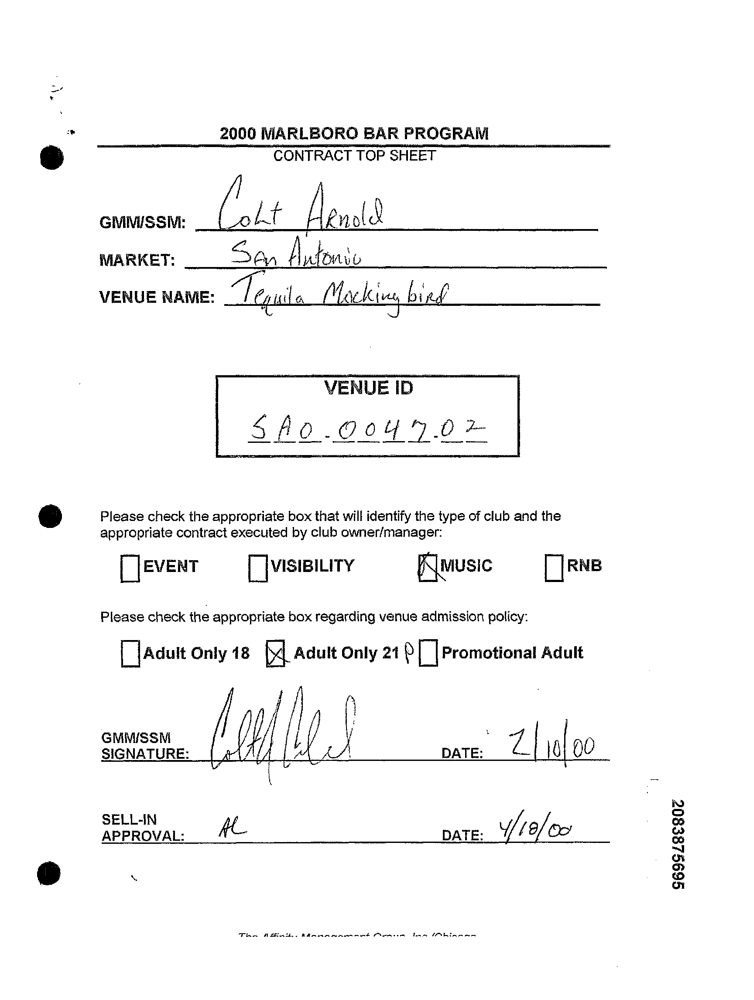 2000 MARLBORO BAR PROGRAM
CONTRACT TOP SHEET
GMM/SSM: Colt Arnold
MARKET: San Antonio
VENUE NAME: Tequila Mockingbird
VENUE ID
SAO-0047-02
Please check the appropriate box that will identify the type of club and the
appropriate contract executed by club owner/manager:
EVENT VISIBILITY MUSIC RNB
Please check the appropriate box regarding venue admission policy:
Adult Only 18 Adult Only 21 P Promotional Adult
GMM/SSM
SIGNATURE: DATE: 2/10/00
SELL-IN
APPROVAL: AL DATE: 4/18/00
2083875695
The Affinity Management Group, Inc./Chicago